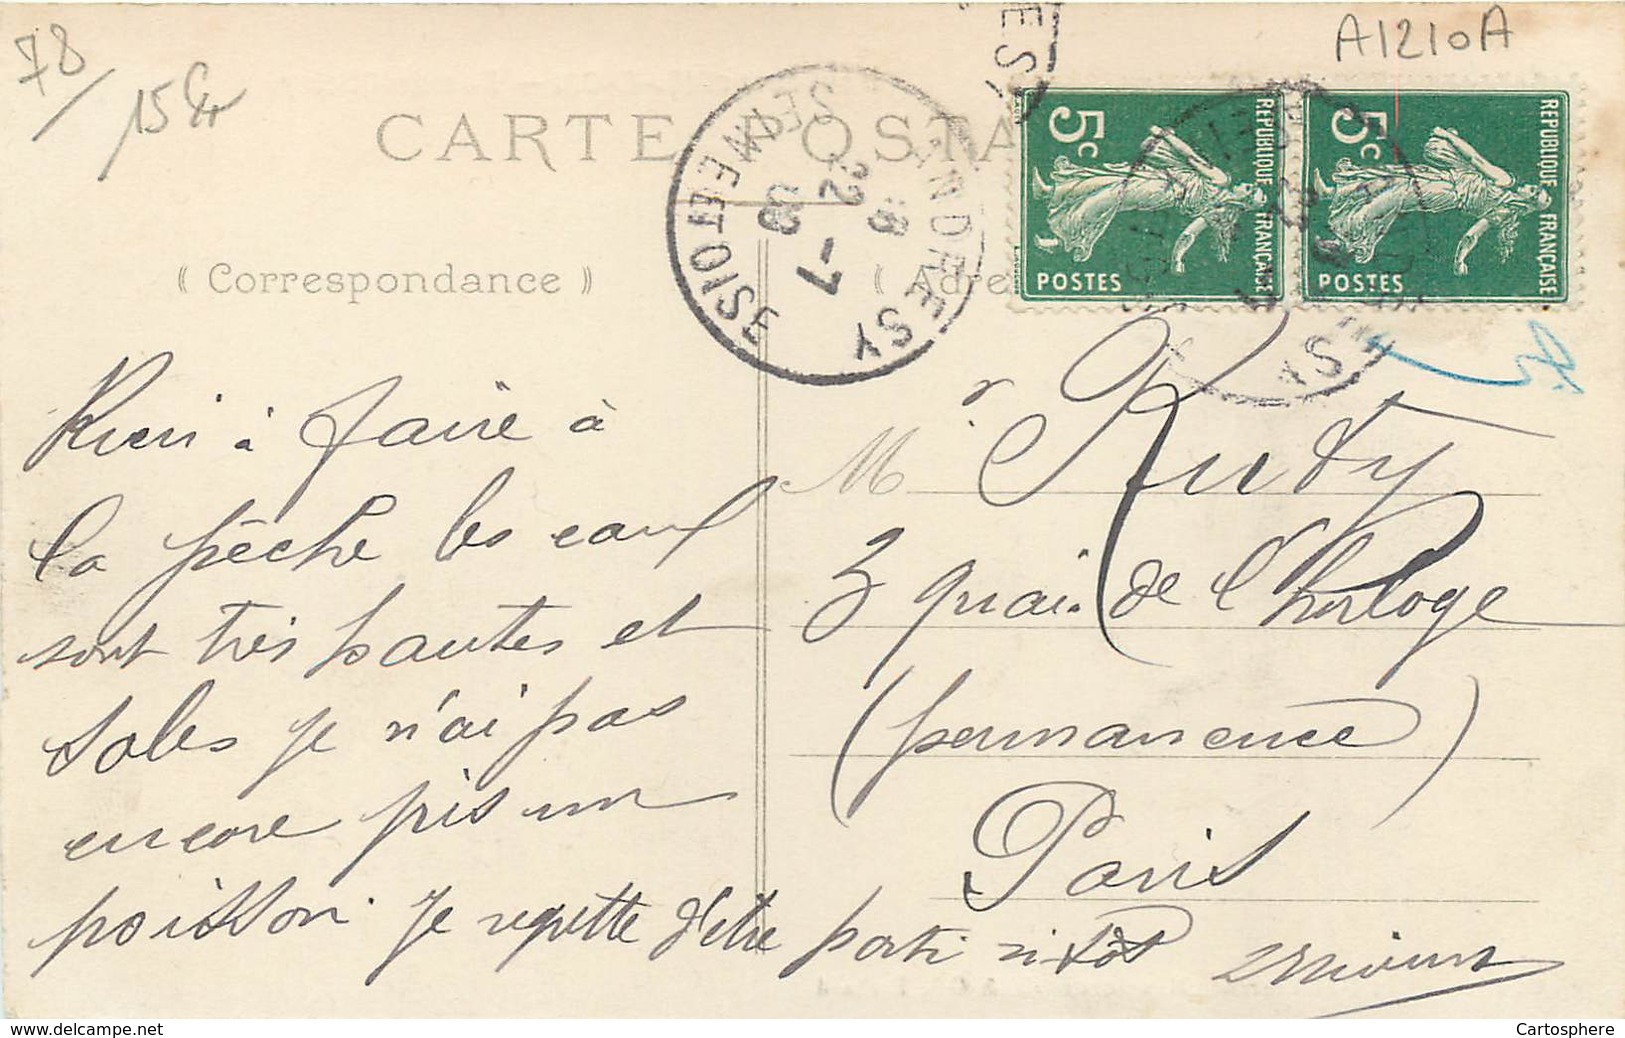 78/
15 Er
A1210A
CARTE POSTA
ANDRESY
SEINE-ET-OISE
8 22 -7 09
5c
REPUBLIQUE FRANÇAISE
POSTES
5c
REPUBLIQUE FRANÇAISE
POSTES
(Correspondance)
(Adre
Rien à faire à
la pêche les eaux
sont très hautes et
sales je n'ai pas
encore pris un
poisson. Je regrette d'être parti si tôt
Mr Ruty
3 quai de l'horloge
(permanence)
Paris
www.delcampe.net
Cartosphere